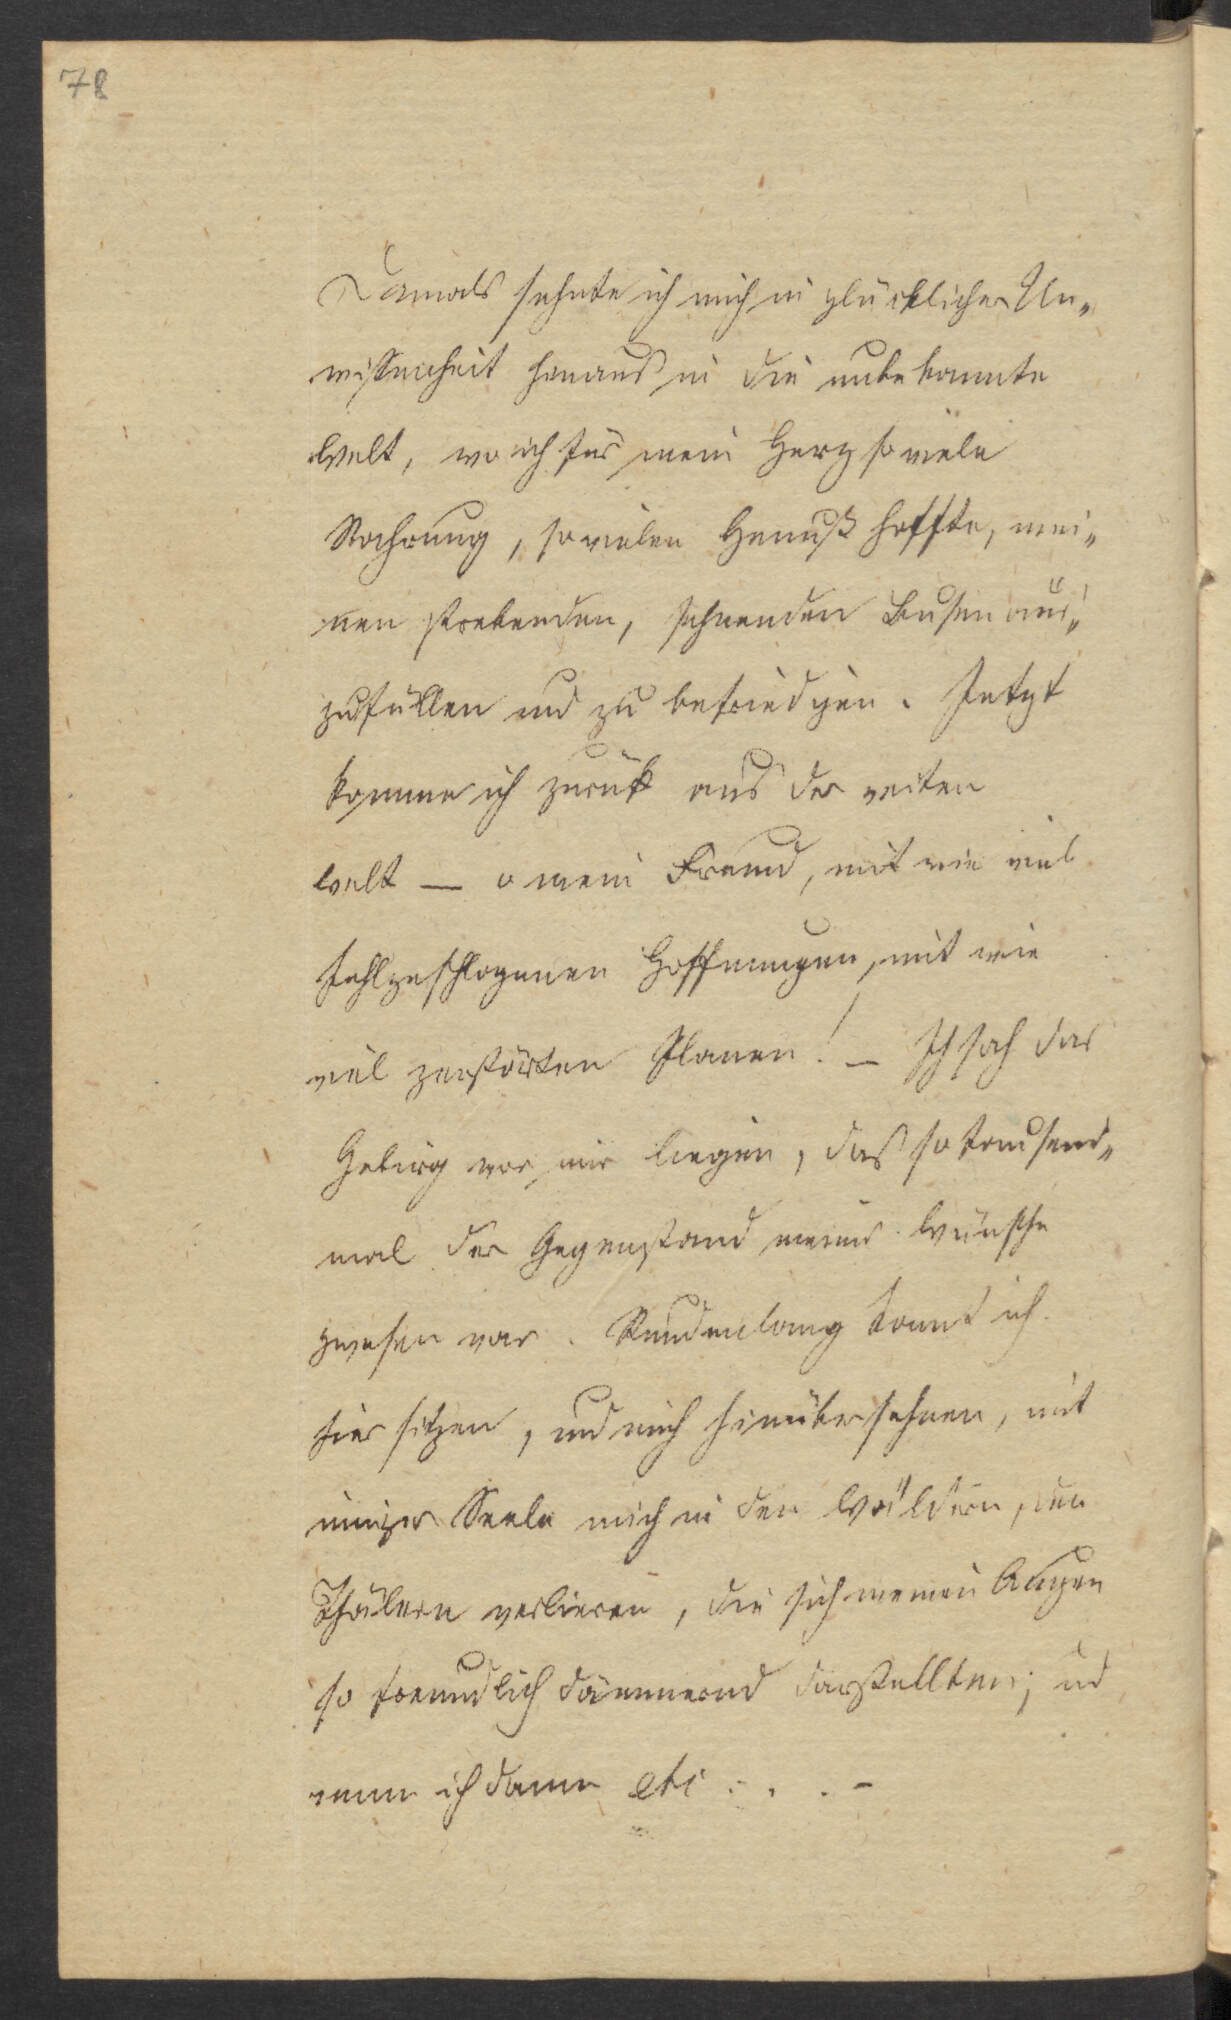 78
Damals sehnte ich mich in glücklicher Un„
wissenheit hinaus in die unbekannte
Welt, wo ich für mein Herz so viele
Nahrung, so vielen Genuß hoffte, mei„
nen strebenden, sehnenden Busen aus„
zufüllen und zu befriedigen. Jetzt
komme ich zurück aus der weiten
Welt — o mein Freund, mit wie viel
fehlgeschlagenen Hoffnungen, mit wie
viel zerstörten Planen! — Ich sah das
Gebirg vor mir liegen, das so tausend„
mal der Gegenstand meiner Wünsche
gewesen war. Stundenlang konnt ich
hier sitzen, und mich hinüber sehnen, mit
inniger Seele mich in den Wäldern, den
Thälern verlieren, die sich meinen Augen
so freundlich dämmernd darstellten; und
wenn ich dann etc . . . -